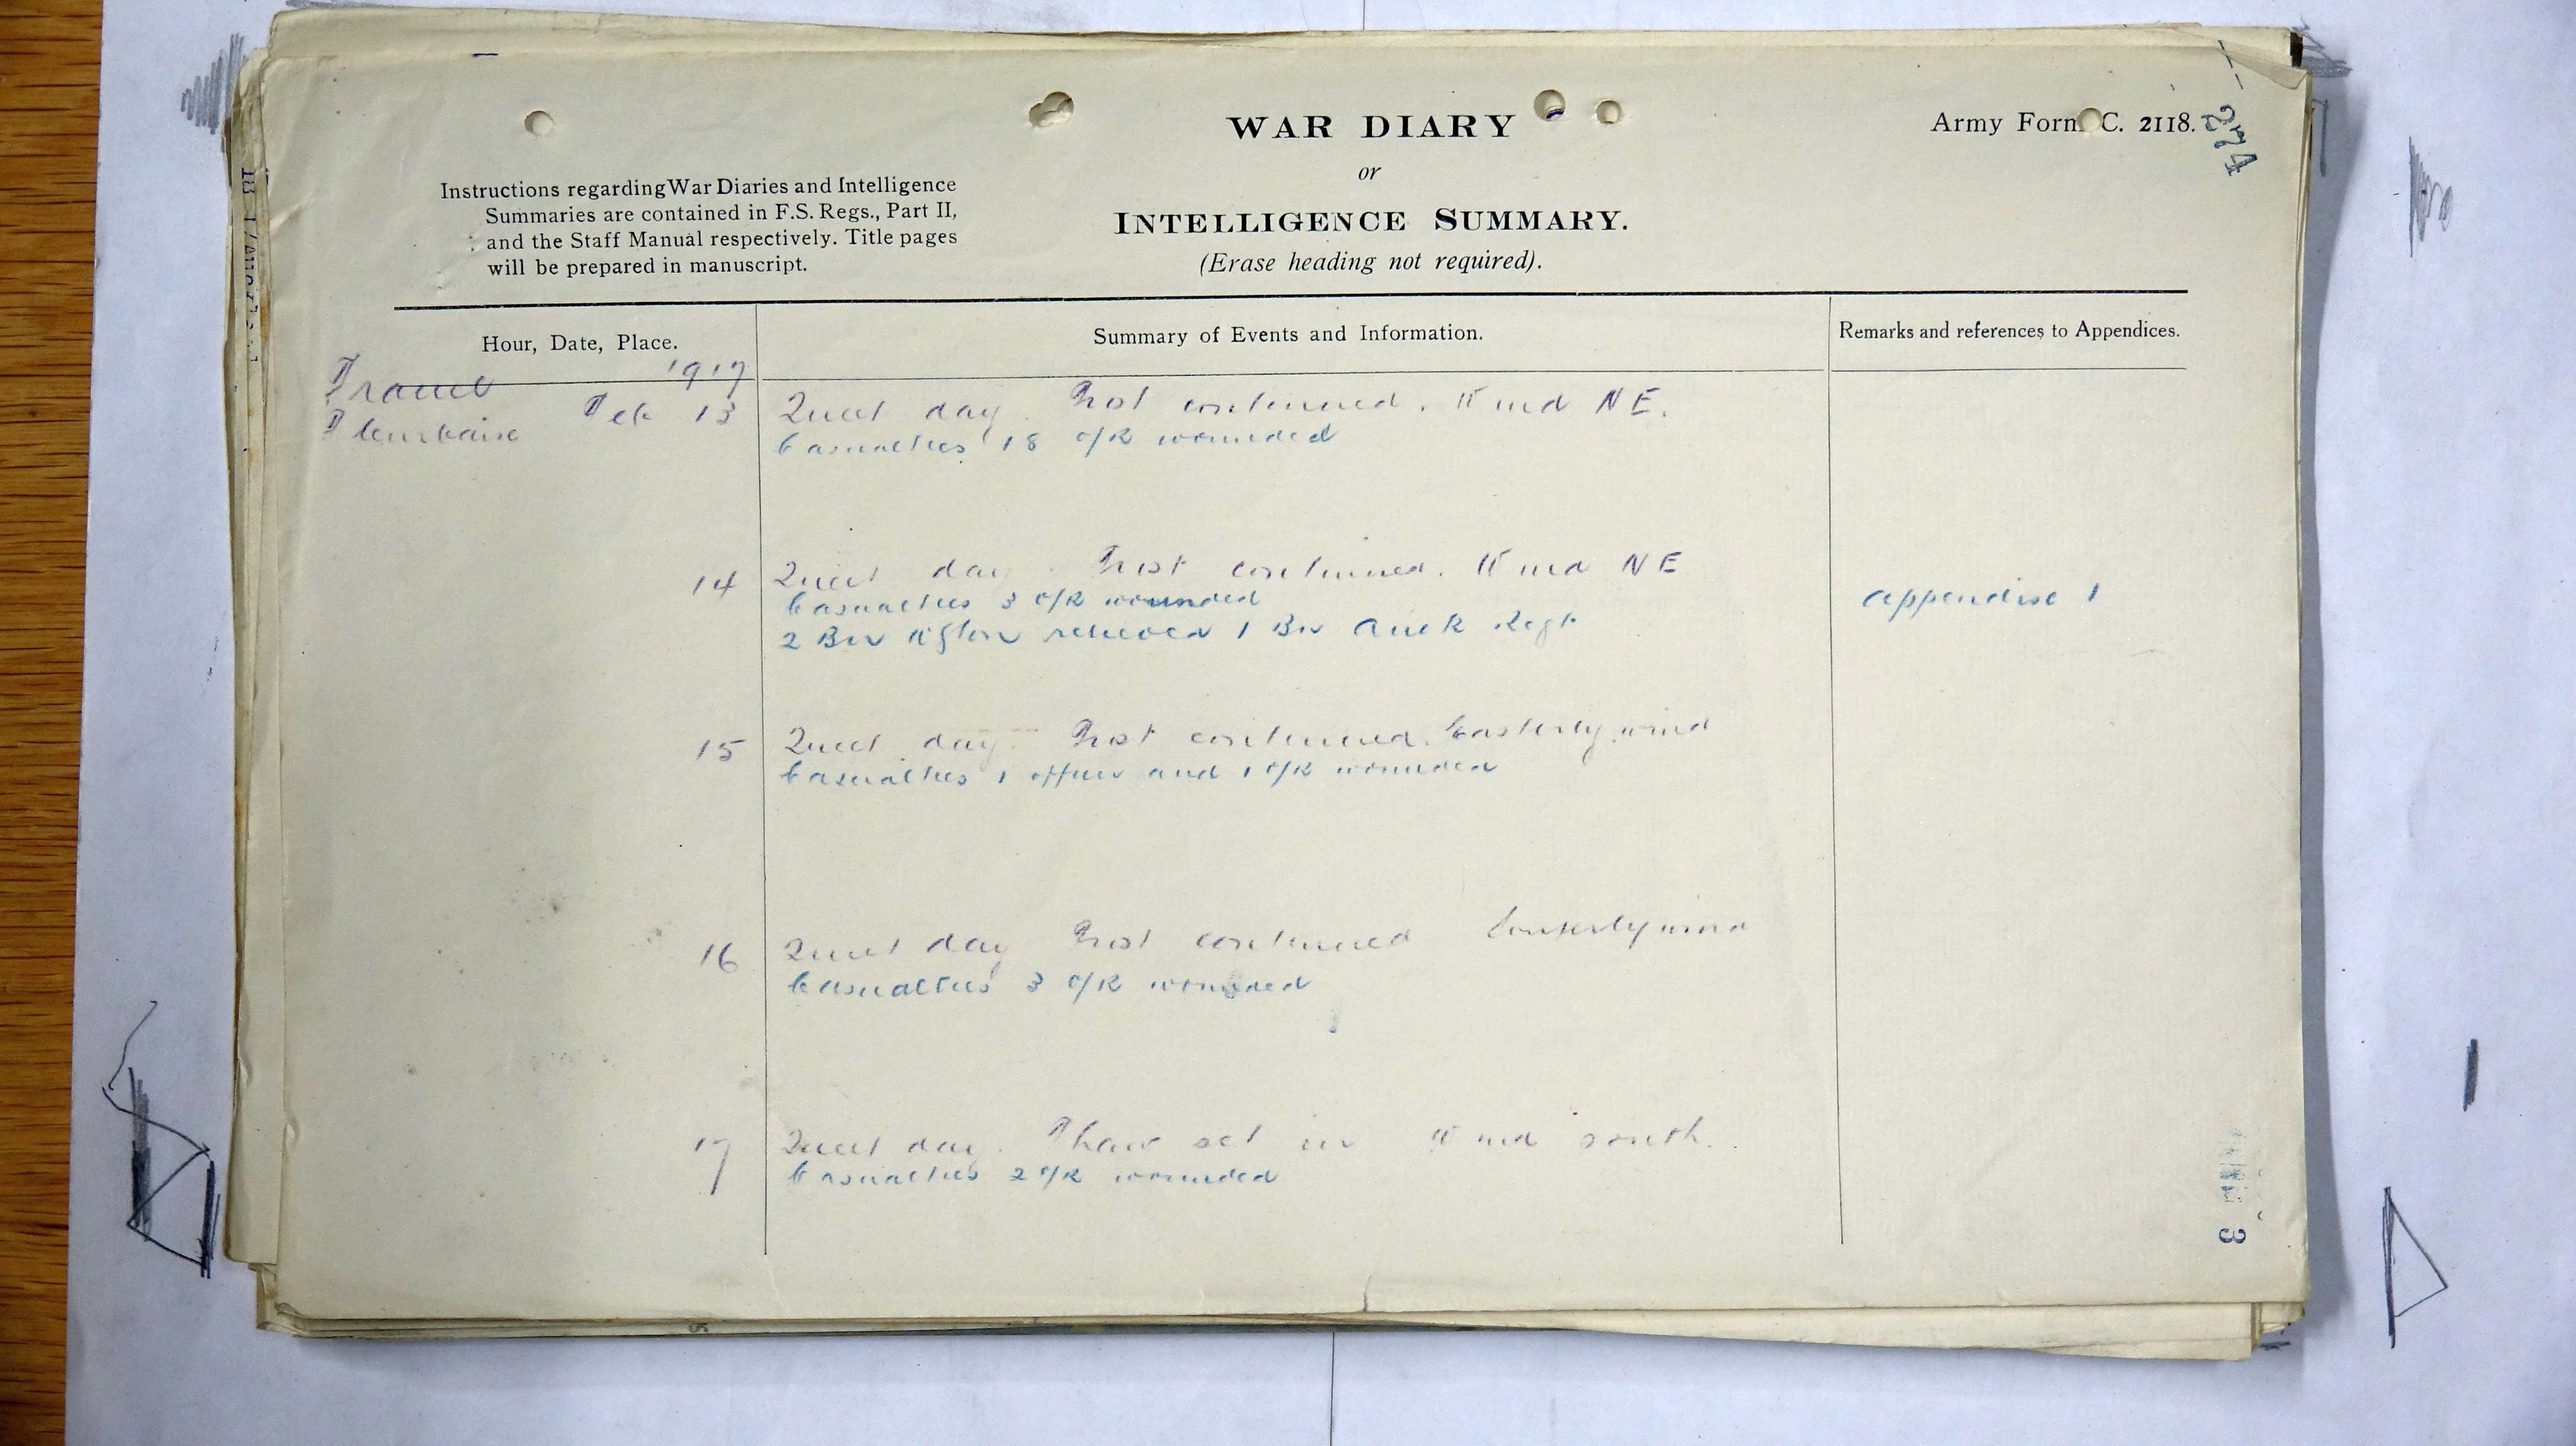 WAR DIARY
or
INTELLIGENCE SUMMARY.
(Erase heading not required).
Army Form C. 2118.
Instructions regarding War Diaries and Intelligence
Summaries are contained in F.S. Regs., Part II,
and the Staff Manual respectively. Title pages
will be prepared in manuscript.
Hour, Date, Place.
Summary of Events and Information.
Remarks and references to Appendices.
France 1917
Fleurbaix Feb 13
Quiet day. Frost continued. Wind NE.
Casualties 18 O/R wounded
14 Quiet day. Frost continued. Wind NE
Casualties 3 O/R wounded
2 Bn Wgton relieved 1 Bn Auck Regt
appendise 1
15 Quiet day. Frost continued. Easterly wind
Casualties 1 officer and 1 O/R wounded
16 Quiet day Frost continued wind
Casualties 3 O/R wounded
17 Quiet day. Thaw set in Wind south.
Casualties 2 O/R wounded
3